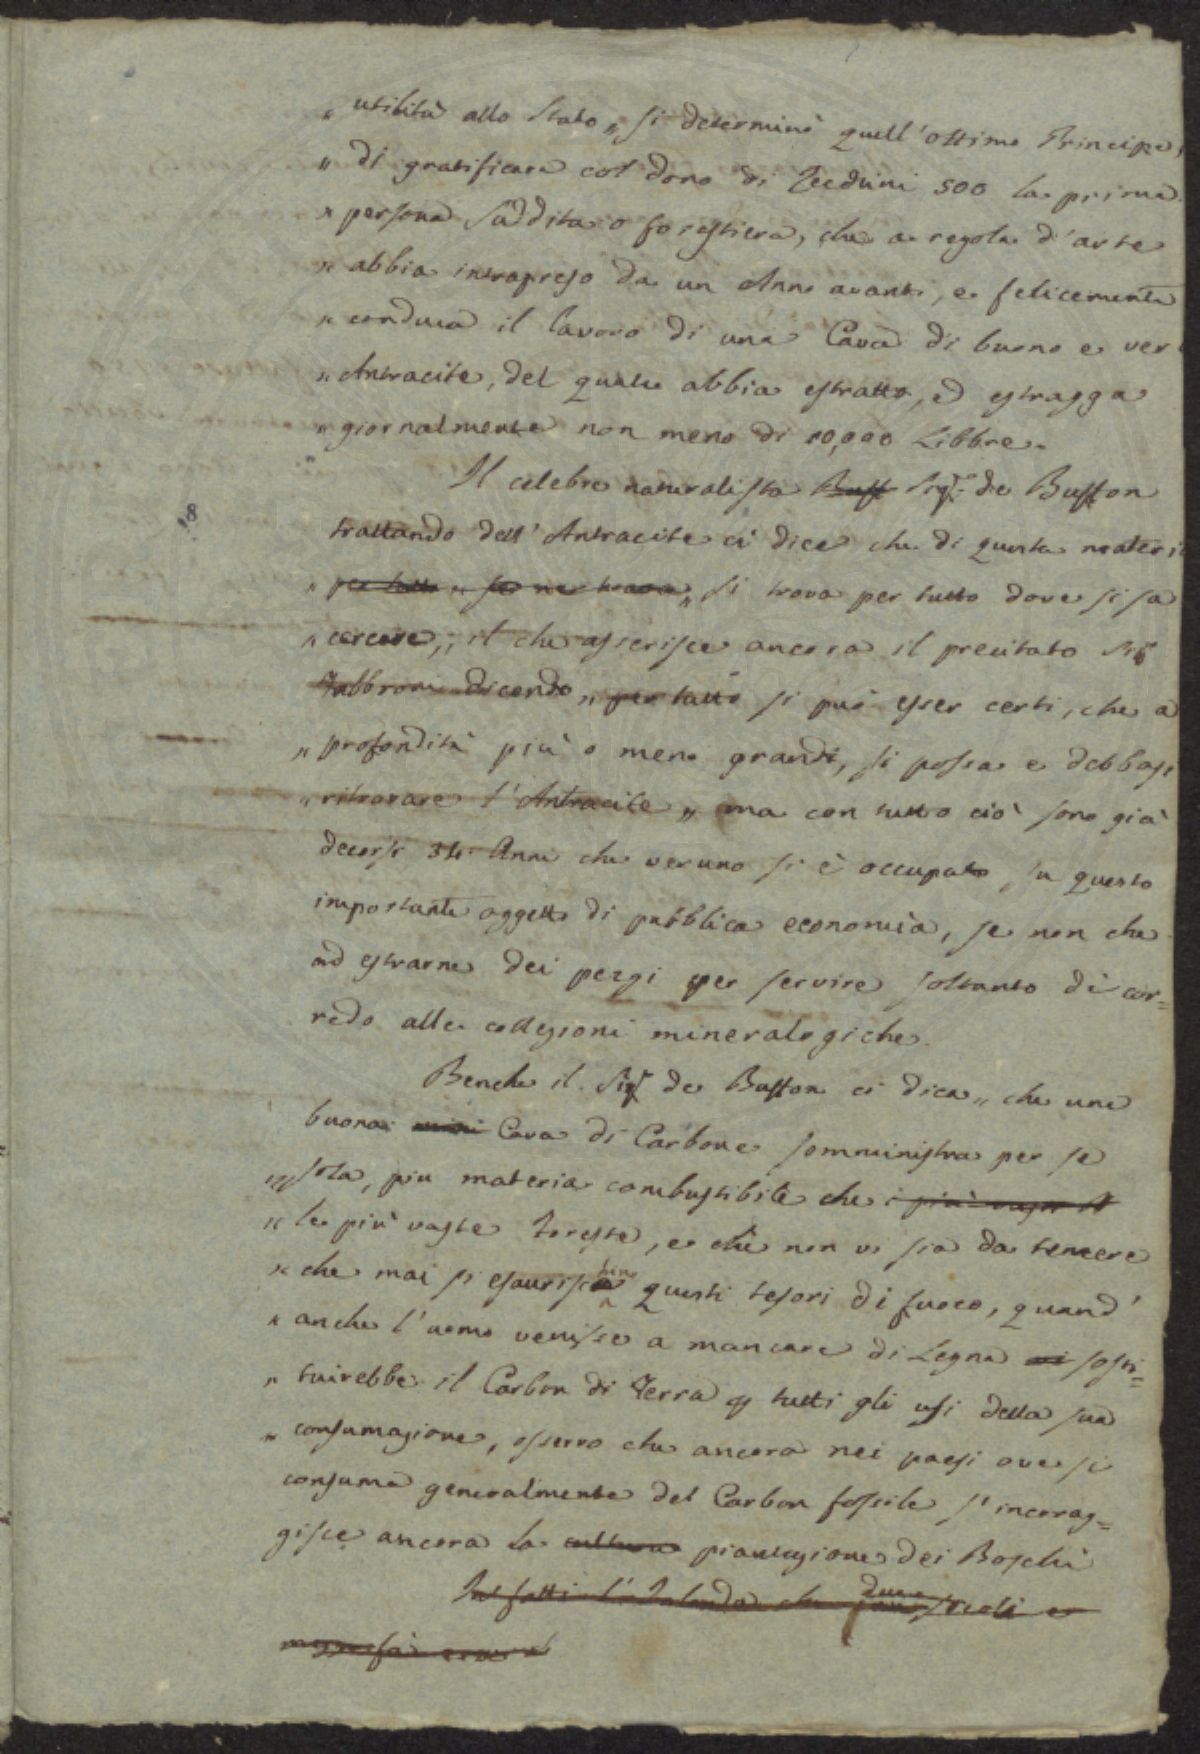 „ utilità allo Stato „ si determinò quell'ottimo Principe,
„ di gratificare col dono di Zecchini 500 la prima
„ persona suddita o forestiera, che a regola d'arte
„ abbia intrapreso da un Anno avanti, e felicemente
„ conduca il lavoro di una Cava di buono e vero
„ Antracite, del quale abbia estratto, ed estragga
„ giornalmente non meno di 10,000 Libbre.
Il celebre naturalista Buff Sigr. de Buffon
8
trattando dell'Antracite ci dice che di questa materia
„ per tutto „ se ne trova „ si trova per tutto dove si sa
„ cercare, „ il che asserisce ancora il precitato Sigr
Fabbroni dicendo „ per tutto si può esser certi, che a
„ profondità più o meno grandi, si possa e debbasi
„ ritrovare l'Antracite „ ma con tutto ciò sono già
decorsi 34 Anni che veruno si è occupato su questo
importante oggetto di pubblica economia, se non che
ad estrarne dei pezzi per servire soltanto di cor=
redo alle collezioni mineralogiche.
Benche il Sigr de Buffon ci dica „ che una
buona Cava di Carbone somministra per se
„ sola, piu materia combustibile che i più vasti
„ le più vaste foreste, e che non vi sia da temere
„ che mai si esauriscano questi tesori di fuoco, quand'
„ anche l'uomo venisse a mancare di Legna sosti=
„ tuirebbe il Carbon di Terra p tutti gli usi della sua
„ consumazione, osservo che ancora nei paesi ove si
consuma generalmente del Carbon fossile s'incorag=
gisce ancora la cultura piantazione dei Boschi
Infatti l'Islanda che due secoli